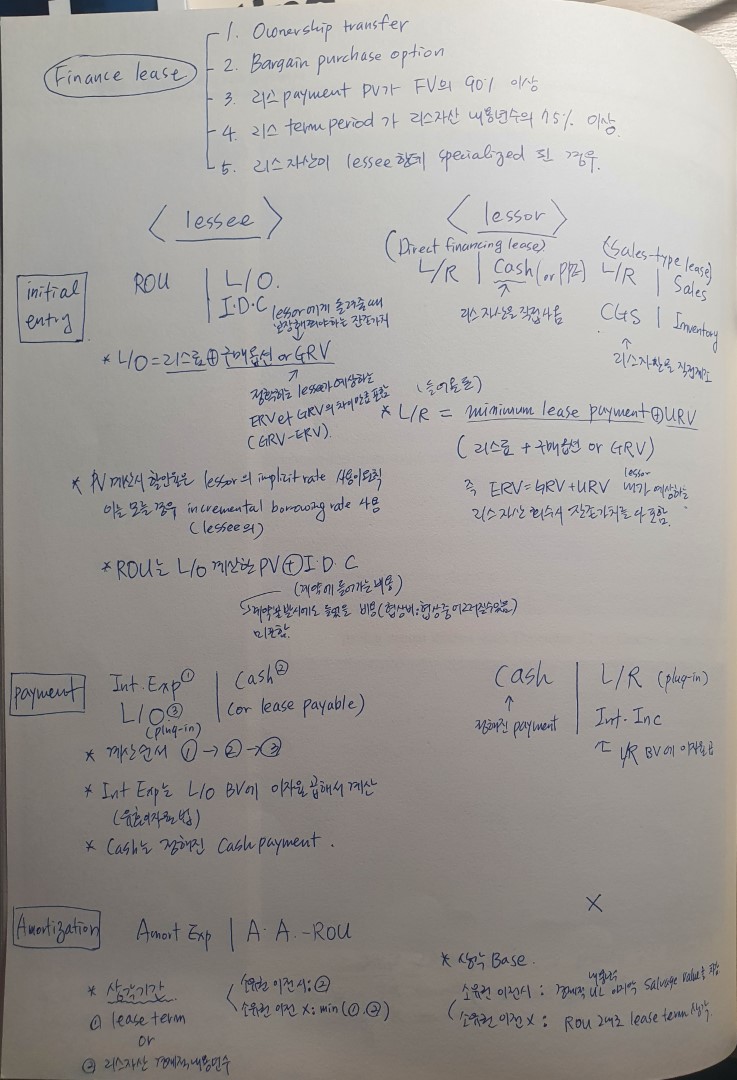 Finance lease
1. Ownership transfer
2. Bargain purchase option
3. 리스 payment PV가 FV의 90% 이상
4. 리스 term period 가 리스자산 내용연수의 75% 이상.
5. 리스자산이 lessee 한테 specialized 된 경우.
< lessee >
< lessor >
initial entry
ROU | L/O.
I·D·C
lessor에게 돌려줄때
보장해줘야하는 잔존가치
* L/O = 리스료 ⊕ 구매옵션 or GRV
정확히는 lessee가 예상하는
ERV와 GRV의 차이만큼 포함
(GRV-ERV).
* PV 계산시 할인율은 lessor의 implicit rate 사용이 원칙
이를 모를 경우 incremental borrowing rate 사용
(lessee의)
* ROU는 L/O 계산한 PV ⊕ I·D·C
(계약에 들어가는 비용)
비용(협상비:협상중
미포함.
(Direct financing lease)
L/R | Cash (or PPE)
리스자산을 직접 사옴
(Sales-type lease)
L/R | Sales
CGS | Inventory
리스자산을 직접제조
(들어올돈)
* L/R = minimum lease payment ⊕ URV
(리스료 + 구매옵션 or GRV)
즉 ERV=GRV+URV lessor 내가 예상하는
리스자산 회수시 잔존가치를 다 포함.
payment
Int. Exp① | Cash②
L/O③ (or lease payable)
(plug-in)
* 계산순서 ① → ② → ③
* Int Exp는 L/O BV에 이자율 곱해서 계산
(유효이자율법)
* Cash는 정해진 Cash payment.
Cash | L/R (plug-in)
Int. Inc
정해진 payment
L/R BV에 이자율곱
Amortization
Amort Exp | A. A. -ROU
X
* 상각기간
① lease term
or
② 리스자산 경제적 내용연수
소유권 이전시: ②
소유권 이전 X: min(①,②)
* 상각 Base.
소유권 이전시 : 경제적 내용연수 Salvage value를
소유권 이전 X : ROU 그대로 lease term 상각.